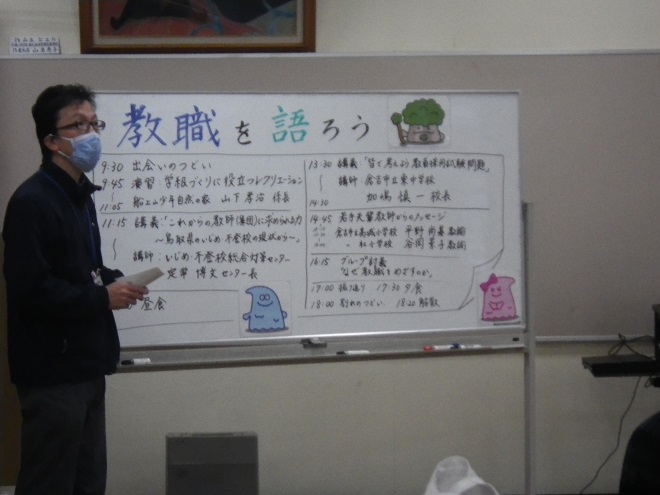 教職を語ろう
9:30 出会いのつどい
9:45 演習:学級づくりに役立つレクリエーション
〜
11:05 船上山少年自然の家 山下 係長
11:15 講義:「これからの教師(集団)に求められる力
〜 〜鳥取県のいじめ・不登校の現状から〜」
講師:いじめ・不登校総合対策センター
定常 博文 センター長
昼食
13:30 講義:「皆で考えよう 教員採用試験問題」
講師:倉吉市立東中学校
14:30 加嶋 慎一 校長
14:45 若き先輩教師からのメッセージ
倉吉市立高城小学校 平野 教諭
〃 社小学校 谷岡 景子 教諭
16:15 グループ討議
「なぜ教職をめざすのか」
17:00 振り返り 17:30 夕食
18:00 別れのつどい 18:20 解散